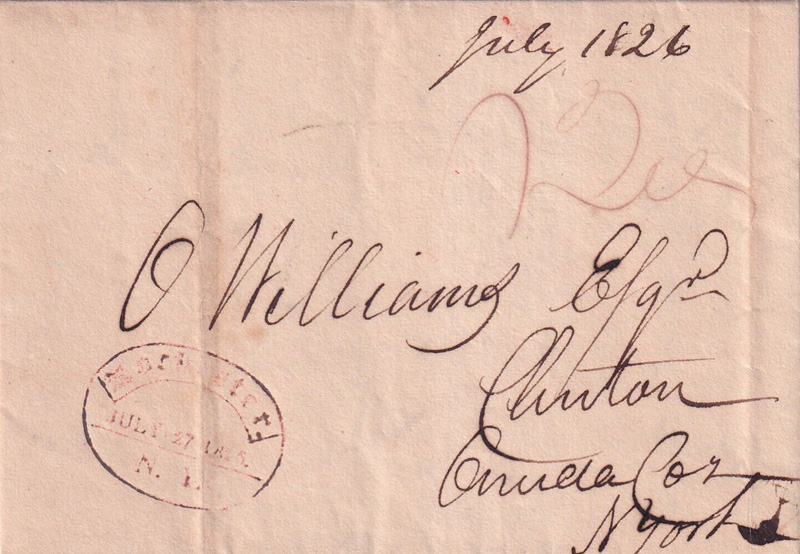 July 1826
O Williams Esqr
Clinton
Oneida Co
N York
JULY 27
N. Y.